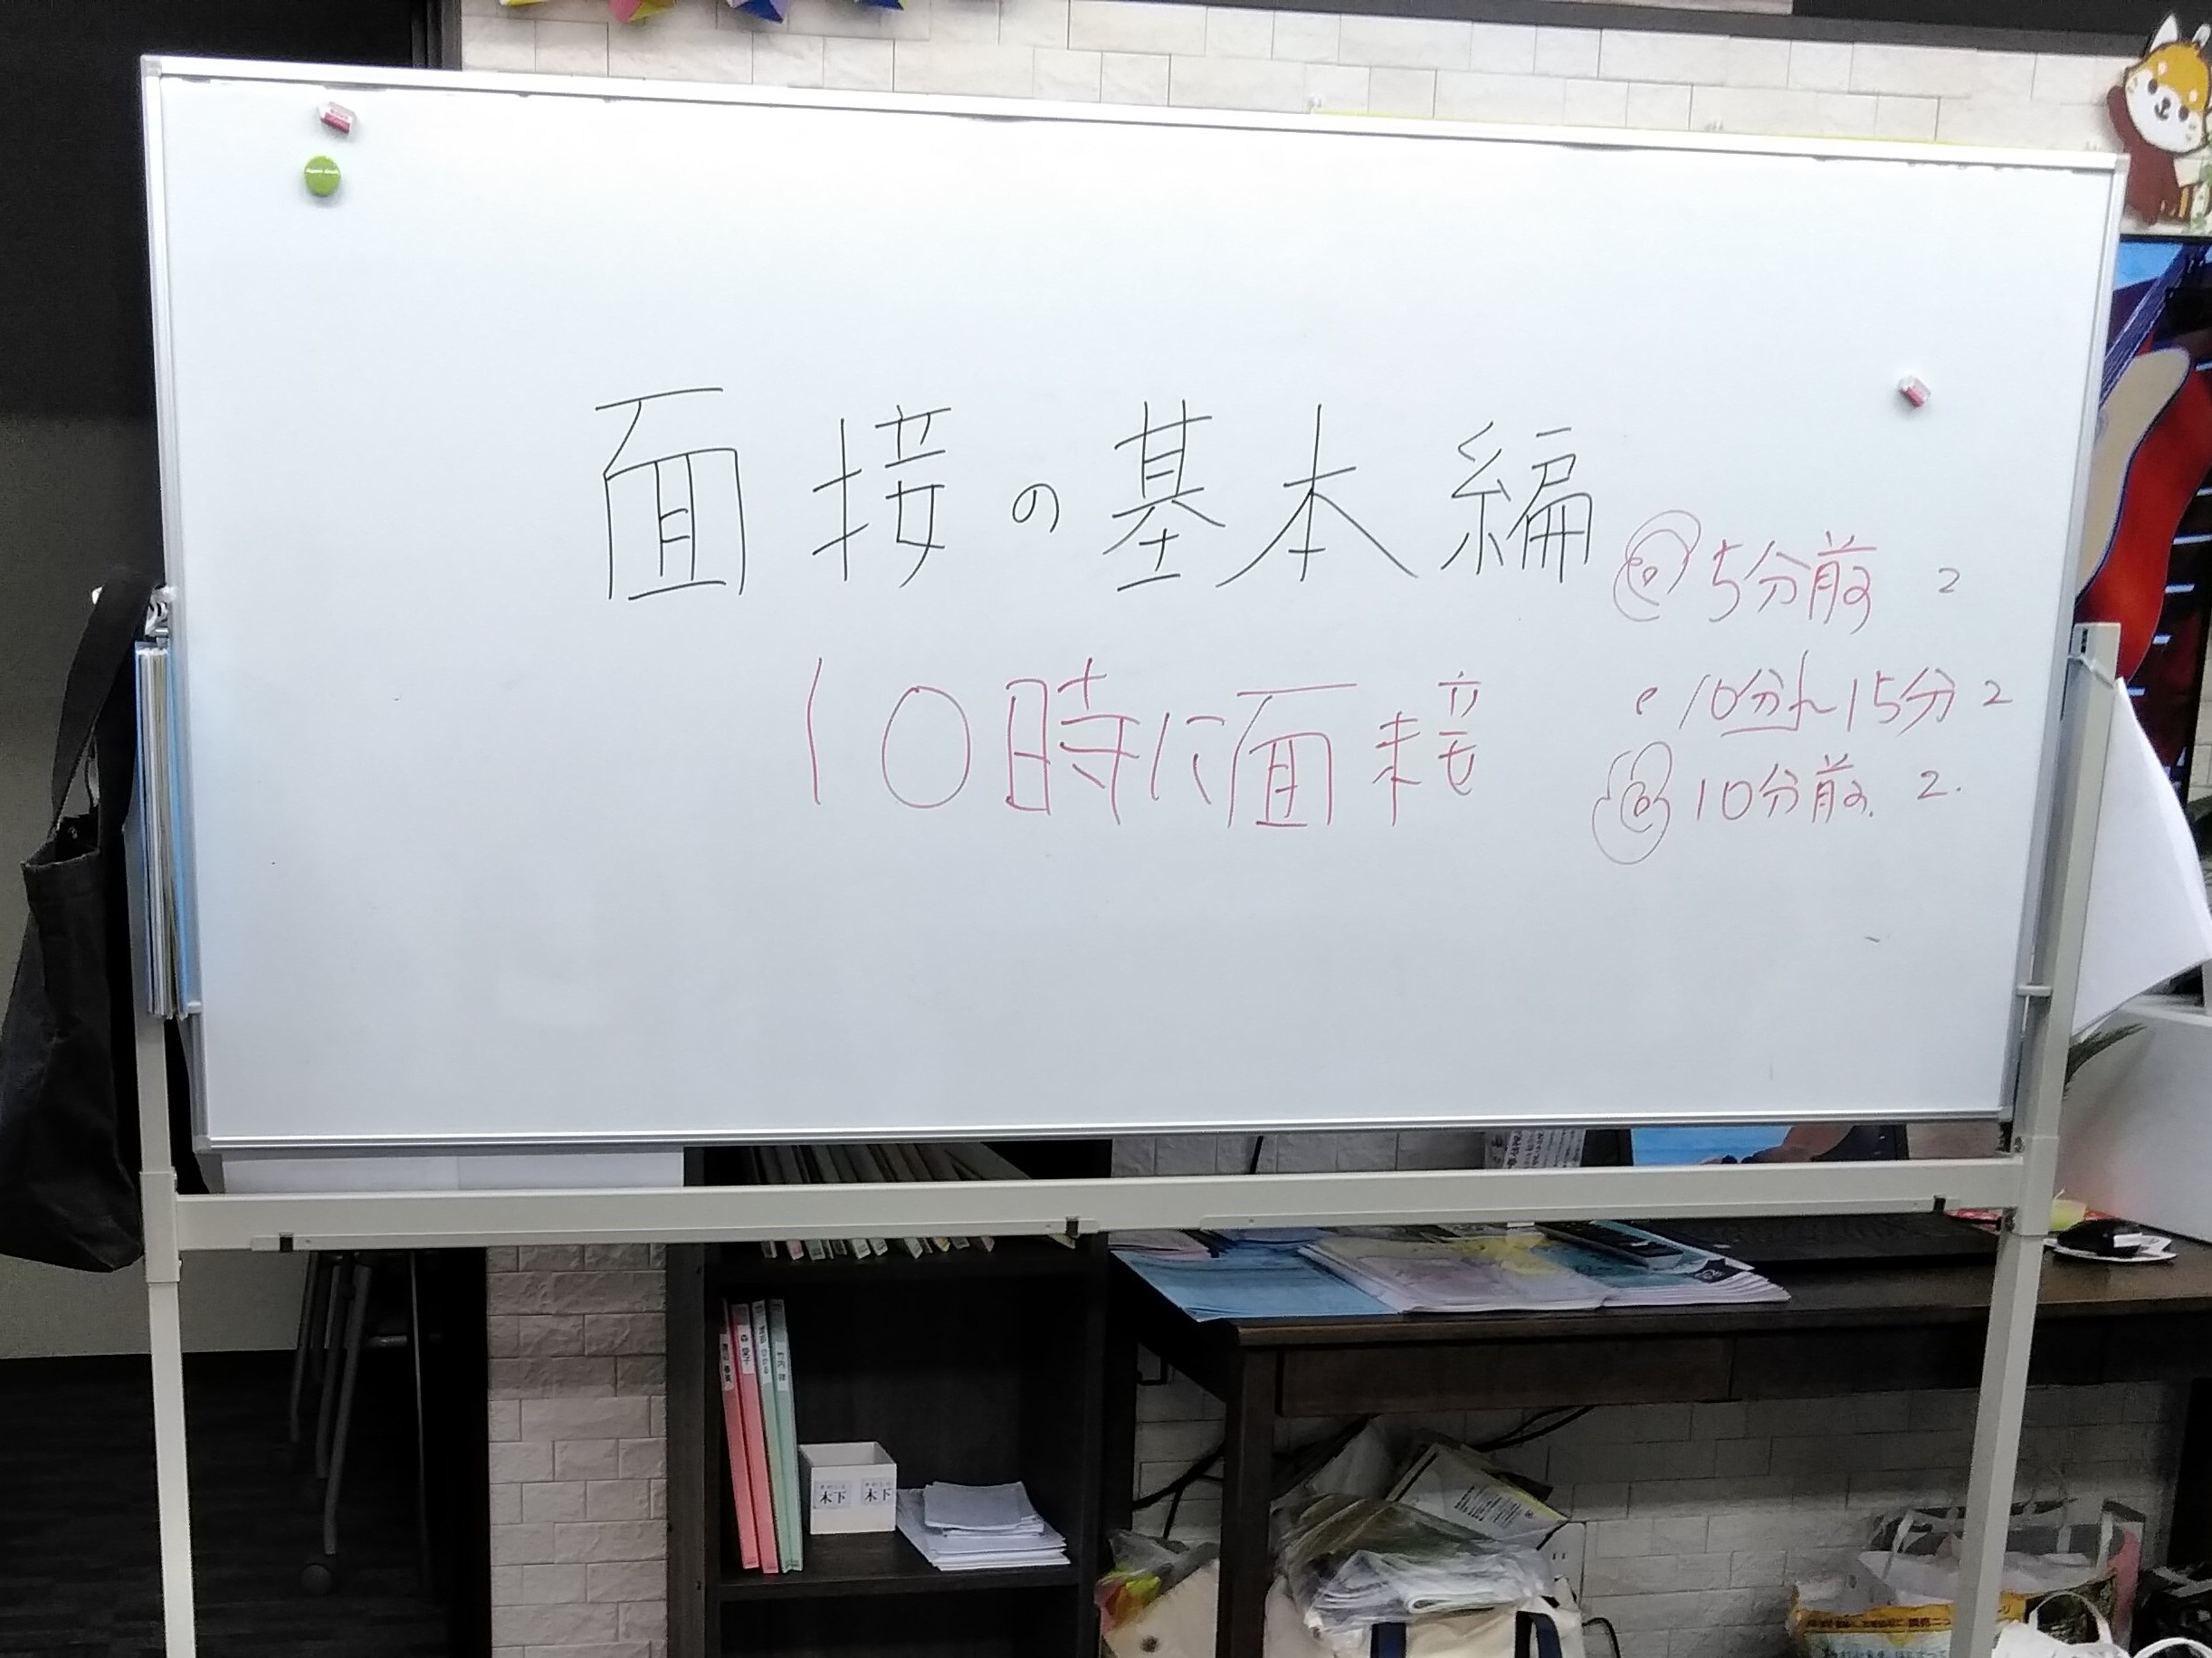 面接の基本編
5分前 2
10時に面接
10分〜15分 2
10分前. 2.
木下 木下